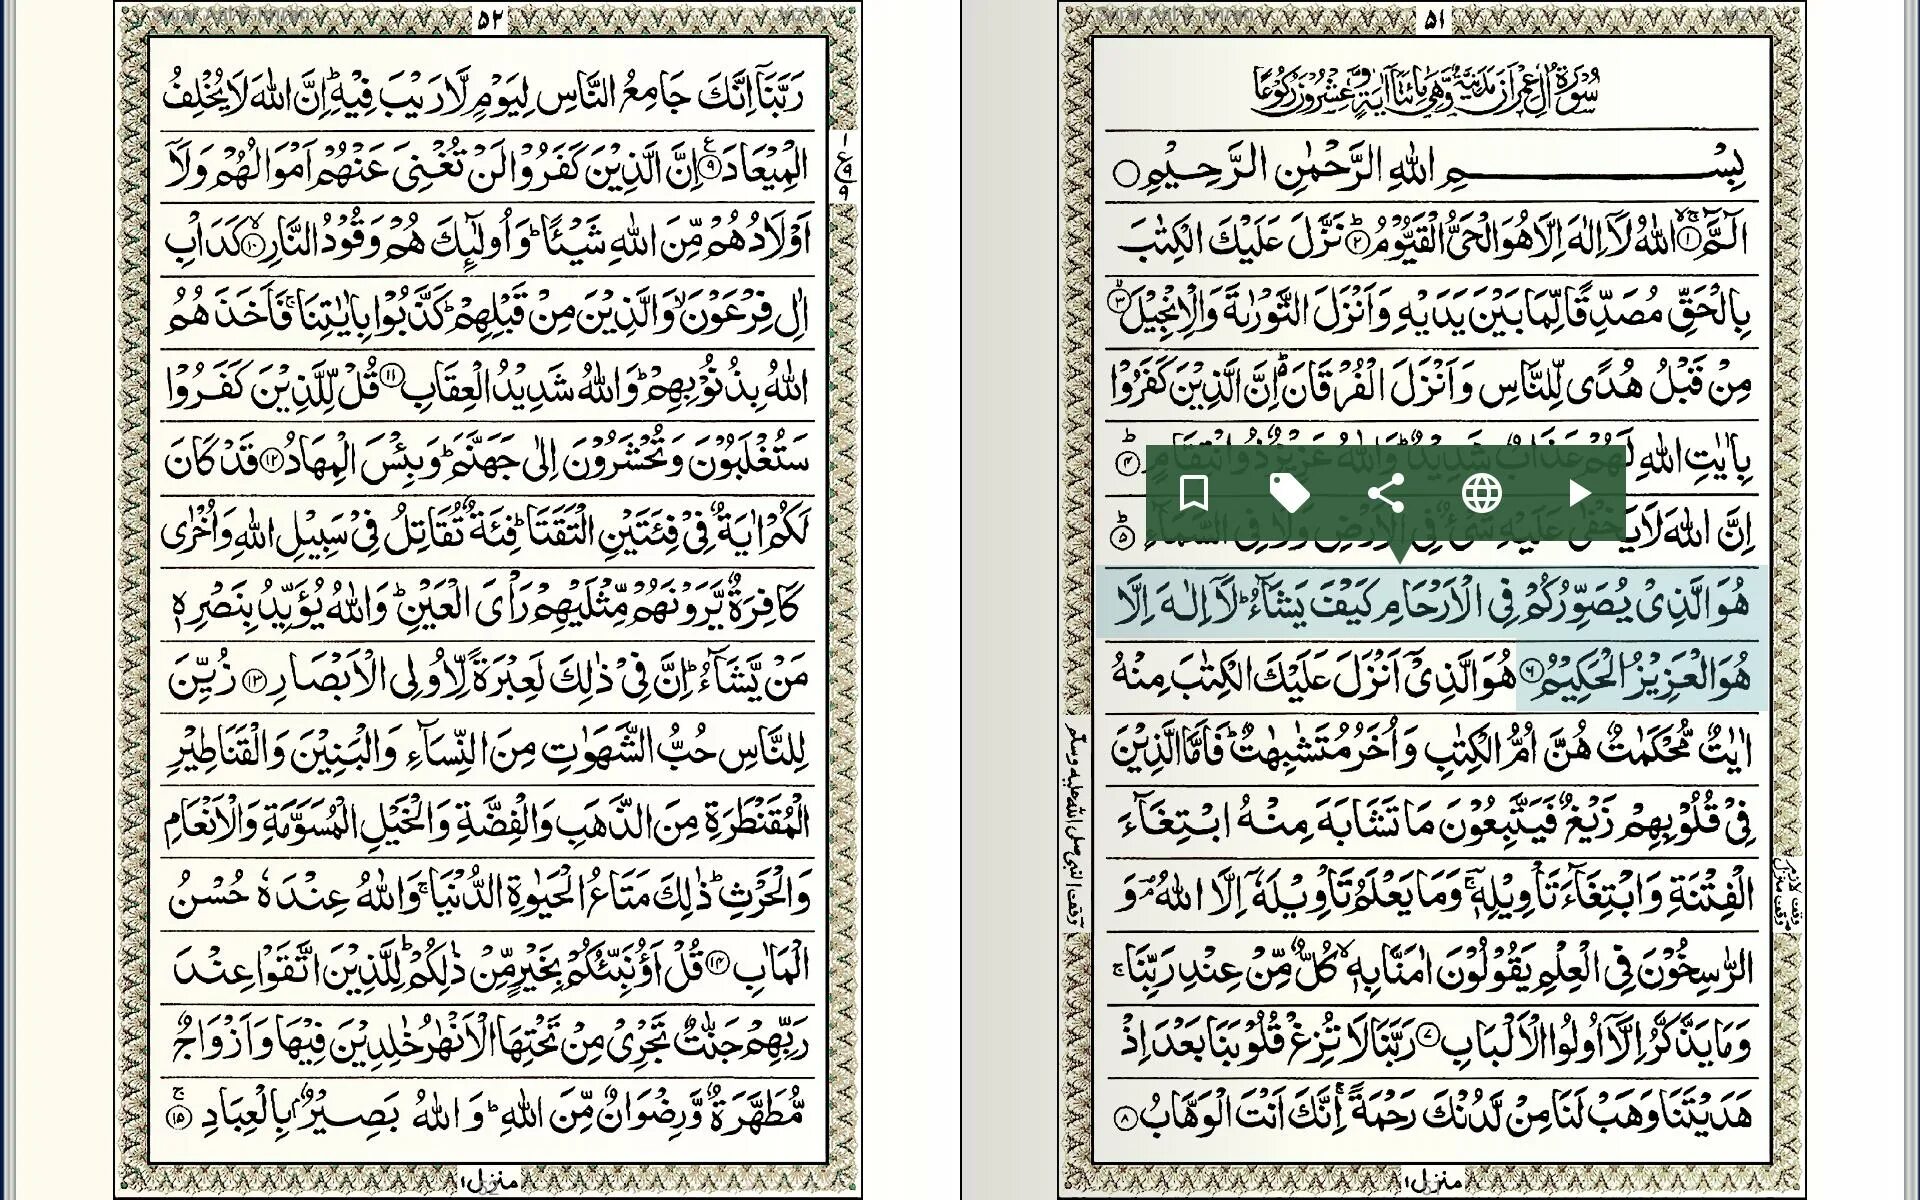 ۵۱
سُوْرَةُ اٰلِ عِمْرٰنَ مَدَنِيَّةٌ وَّهِىَ مِائَتَا اٰيَةٍ وَّعِشْرُوْنَ رُكُوْعًا
بِسْمِ اللّٰهِ الرَّحْمٰنِ الرَّحِيْمِ
الٓمّٓ ۙ‏﴿۱﴾ اللّٰهُ لَاۤ اِلٰهَ اِلَّا هُوَ الْحَىُّ الْقَيُّوْمُ ؕ‏﴿۲﴾ نَزَّلَ عَلَيْكَ الْكِتٰبَ
بِالْحَقِّ مُصَدِّقًا لِّمَا بَيْنَ يَدَيْهِ وَاَنْزَلَ التَّوْرٰٮةَ وَالْاِنْجِيْلَ ۙ‏﴿۳﴾
مِنْ قَبْلُ هُدًى لِّلنَّاسِ وَاَنْزَلَ الْفُرْقَانَ ؕ اِنَّ الَّذِيْنَ كَفَرُوْا
بِاٰيٰتِ اللّٰهِ لَهُمْ عَذَابٌ شَدِيْدٌ ؕ وَاللّٰهُ عَزِيْزٌ ذُو انْتِقَامٍ ؕ‏﴿۴﴾
اِنَّ اللّٰهَ لَا يَخْفٰى عَلَيْهِ شَىْءٌ فِى الْاَرْضِ وَلَا فِى السَّمَآءِ ؕ‏﴿۵﴾
هُوَ الَّذِىْ يُصَوِّرُكُمْ فِى الْاَرْحَامِ كَيْفَ يَشَآءُ ؕ لَاۤ اِلٰهَ اِلَّا
هُوَ الْعَزِيْزُ الْحَكِيْمُ‏﴿۶﴾ هُوَ الَّذِىْۤ اَنْزَلَ عَلَيْكَ الْكِتٰبَ مِنْهُ
اٰيٰتٌ مُّحْكَمٰتٌ هُنَّ اُمُّ الْكِتٰبِ وَاُخَرُ مُتَشٰبِهٰتٌ ؕ فَاَمَّا الَّذِيْنَ
فِىْ قُلُوْبِهِمْ زَيْغٌ فَيَتَّبِعُوْنَ مَا تَشَابَهَ مِنْهُ ابْتِغَآءَ
الْفِتْنَةِ وَابْتِغَآءَ تَاْوِيْلِهٖ ۚ وَمَا يَعْلَمُ تَاْوِيْلَهٗۤ اِلَّا اللّٰهُ ۘ وَ
الرّٰسِخُوْنَ فِى الْعِلْمِ يَقُوْلُوْنَ اٰمَنَّا بِهٖ ۙ كُلٌّ مِّنْ عِنْدِ رَبِّنَا ۚ
وَمَا يَذَّكَّرُ اِلَّاۤ اُولُوا الْاَلْبَابِ‏﴿۷﴾ رَبَّنَا لَا تُزِغْ قُلُوْبَنَا بَعْدَ اِذْ
هَدَيْتَنَا وَهَبْ لَنَا مِنْ لَّدُنْكَ رَحْمَةً ۚ اِنَّكَ اَنْتَ الْوَهَّابُ‏﴿۸﴾
وقف لازم
وقف منزل
وقف النبی صلی اللہ علیہ وسلم
منزل۱
۵۲
رَبَّنَاۤ اِنَّكَ جَامِعُ النَّاسِ لِيَوْمٍ لَّا رَيْبَ فِيْهِ ؕ اِنَّ اللّٰهَ لَا يُخْلِفُ
الْمِيْعَادَ‏﴿۹﴾ اِنَّ الَّذِيْنَ كَفَرُوْا لَنْ تُغْنِىَ عَنْهُمْ اَمْوَالُهُمْ وَلَاۤ
اَوْلَادُهُمْ مِّنَ اللّٰهِ شَيْئًا ؕ وَاُولٰٓئِكَ هُمْ وَقُوْدُ النَّارِ ۙ‏﴿۱۰﴾ كَدَاْبِ
اٰلِ فِرْعَوْنَ ۙ وَالَّذِيْنَ مِنْ قَبْلِهِمْ ؕ كَذَّبُوْا بِاٰيٰتِنَا ۚ فَاَخَذَهُمُ
اللّٰهُ بِذُنُوْبِهِمْ ؕ وَاللّٰهُ شَدِيْدُ الْعِقَابِ‏﴿۱۱﴾ قُلْ لِّلَّذِيْنَ كَفَرُوْا
سَتُغْلَبُوْنَ وَتُحْشَرُوْنَ اِلٰى جَهَنَّمَ ؕ وَبِئْسَ الْمِهَادُ‏﴿۱۲﴾ قَدْ كَانَ
لَكُمْ اٰيَةٌ فِىْ فِئَتَيْنِ الْتَقَتَا ؕ فِئَةٌ تُقَاتِلُ فِىْ سَبِيْلِ اللّٰهِ وَاُخْرٰى
كَافِرَةٌ يَّرَوْنَهُمْ مِّثْلَيْهِمْ رَاْىَ الْعَيْنِ ؕ وَاللّٰهُ يُؤَيِّدُ بِنَصْرِهٖ
مَنْ يَّشَآءُ ؕ اِنَّ فِىْ ذٰلِكَ لَعِبْرَةً لِّاُولِى الْاَبْصَارِ‏﴿۱۳﴾ زُيِّنَ
لِلنَّاسِ حُبُّ الشَّهَوٰتِ مِنَ النِّسَآءِ وَالْبَنِيْنَ وَالْقَنَاطِيْرِ
الْمُقَنْطَرَةِ مِنَ الذَّهَبِ وَالْفِضَّةِ وَالْخَيْلِ الْمُسَوَّمَةِ وَالْاَنْعَامِ
وَالْحَرْثِ ؕ ذٰلِكَ مَتَاعُ الْحَيٰوةِ الدُّنْيَا ۚ وَاللّٰهُ عِنْدَهٗ حُسْنُ
الْمَاٰبِ‏﴿۱۴﴾ قُلْ اَؤُنَبِّئُكُمْ بِخَيْرٍ مِّنْ ذٰلِكُمْ ؕ لِلَّذِيْنَ اتَّقَوْا عِنْدَ
رَبِّهِمْ جَنّٰتٌ تَجْرِىْ مِنْ تَحْتِهَا الْاَنْهٰرُ خٰلِدِيْنَ فِيْهَا وَاَزْوَاجٌ
مُّطَهَّرَةٌ وَّرِضْوَانٌ مِّنَ اللّٰهِ ؕ وَاللّٰهُ بَصِيْرٌۢ بِالْعِبَادِ ۚ‏﴿۱۵﴾
۱
ع
۹
۹
منزل۱